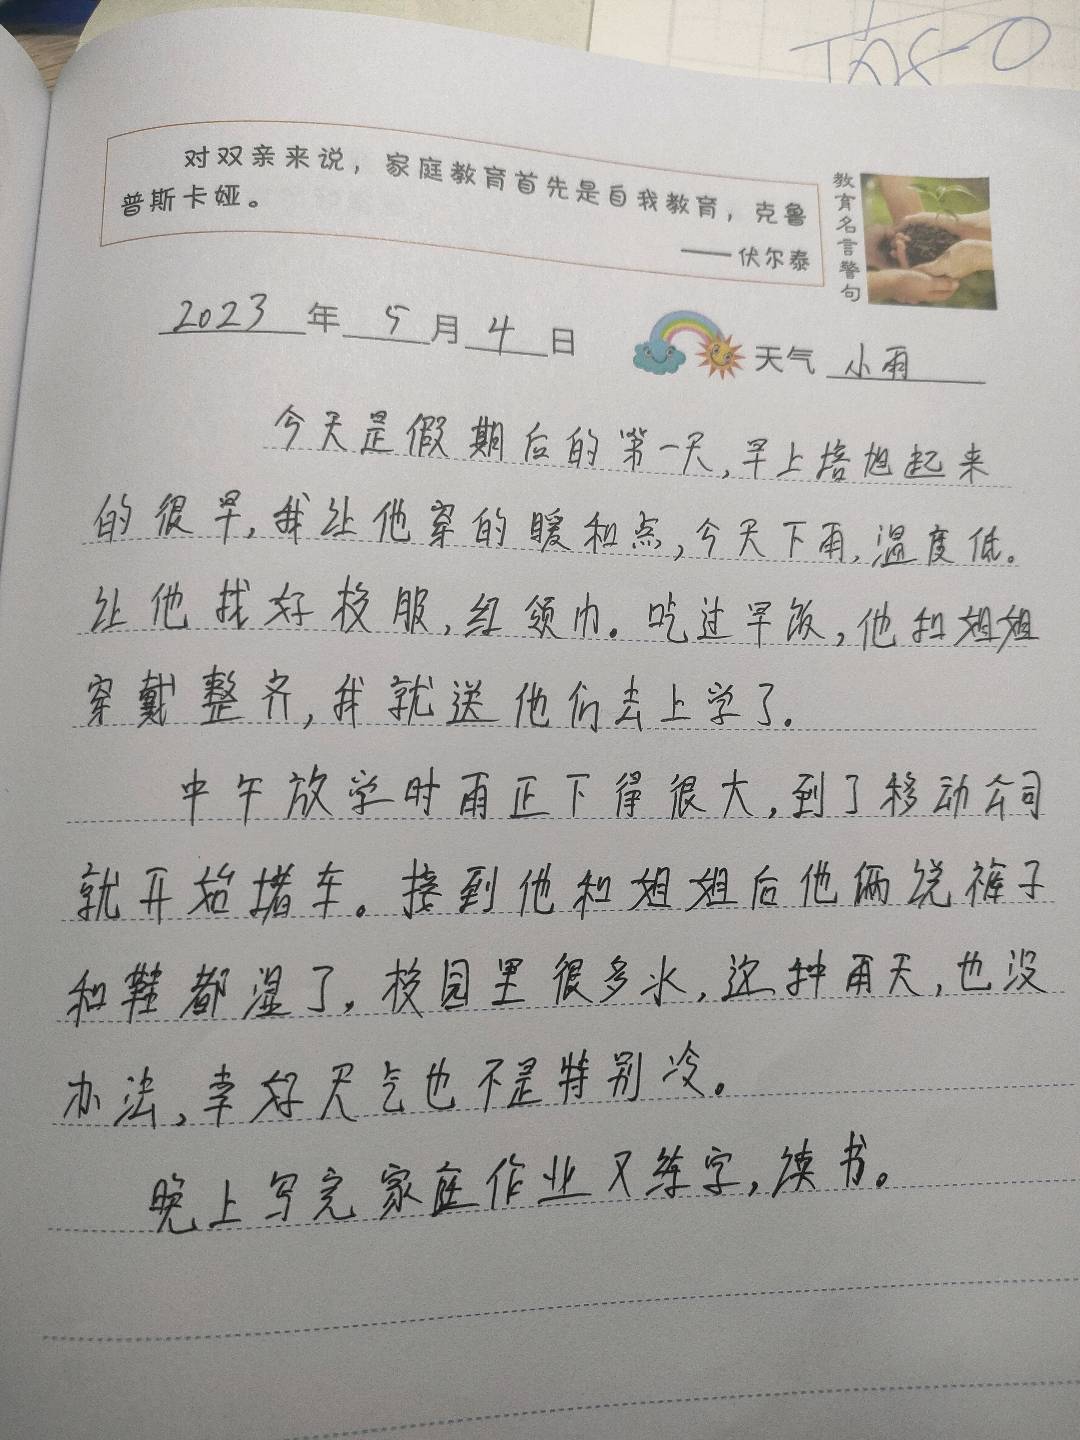 对双亲来说，家庭教育首先是自我教育，克鲁
普斯卡娅。
——伏尔泰
教育名言警句
2023年5月4日
天气 小雨
今天是假期后的第一天,早上培旭起来
的很早,我让他穿的暖和点,今天下雨,温度低。
让他找好校服,红领巾。吃过早饭,他和姐姐
穿戴整齐,我就送他们去上学了。
中午放学时雨正下得很大,到了移动公司
就开始堵车。接到他和姐姐后他俩说裤子
和鞋都湿了,校园里很多水,这种雨天,也没
办法,幸好天气也不是特别冷。
晚上写完家庭作业又练字,读书。